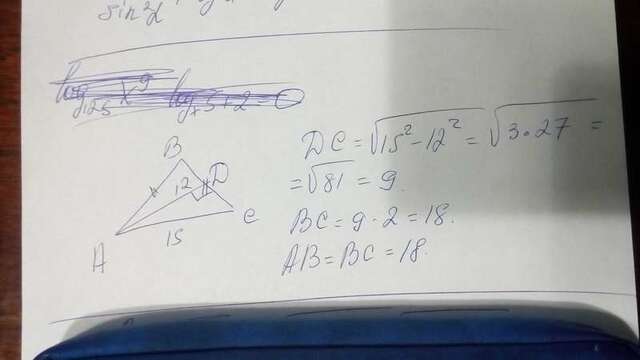 sin²α
B
12 D
A 15 C
DC = √15² - 12² = √3·27 =
= √81 = 9.
BC = 9·2 = 18.
AB = BC = 18.